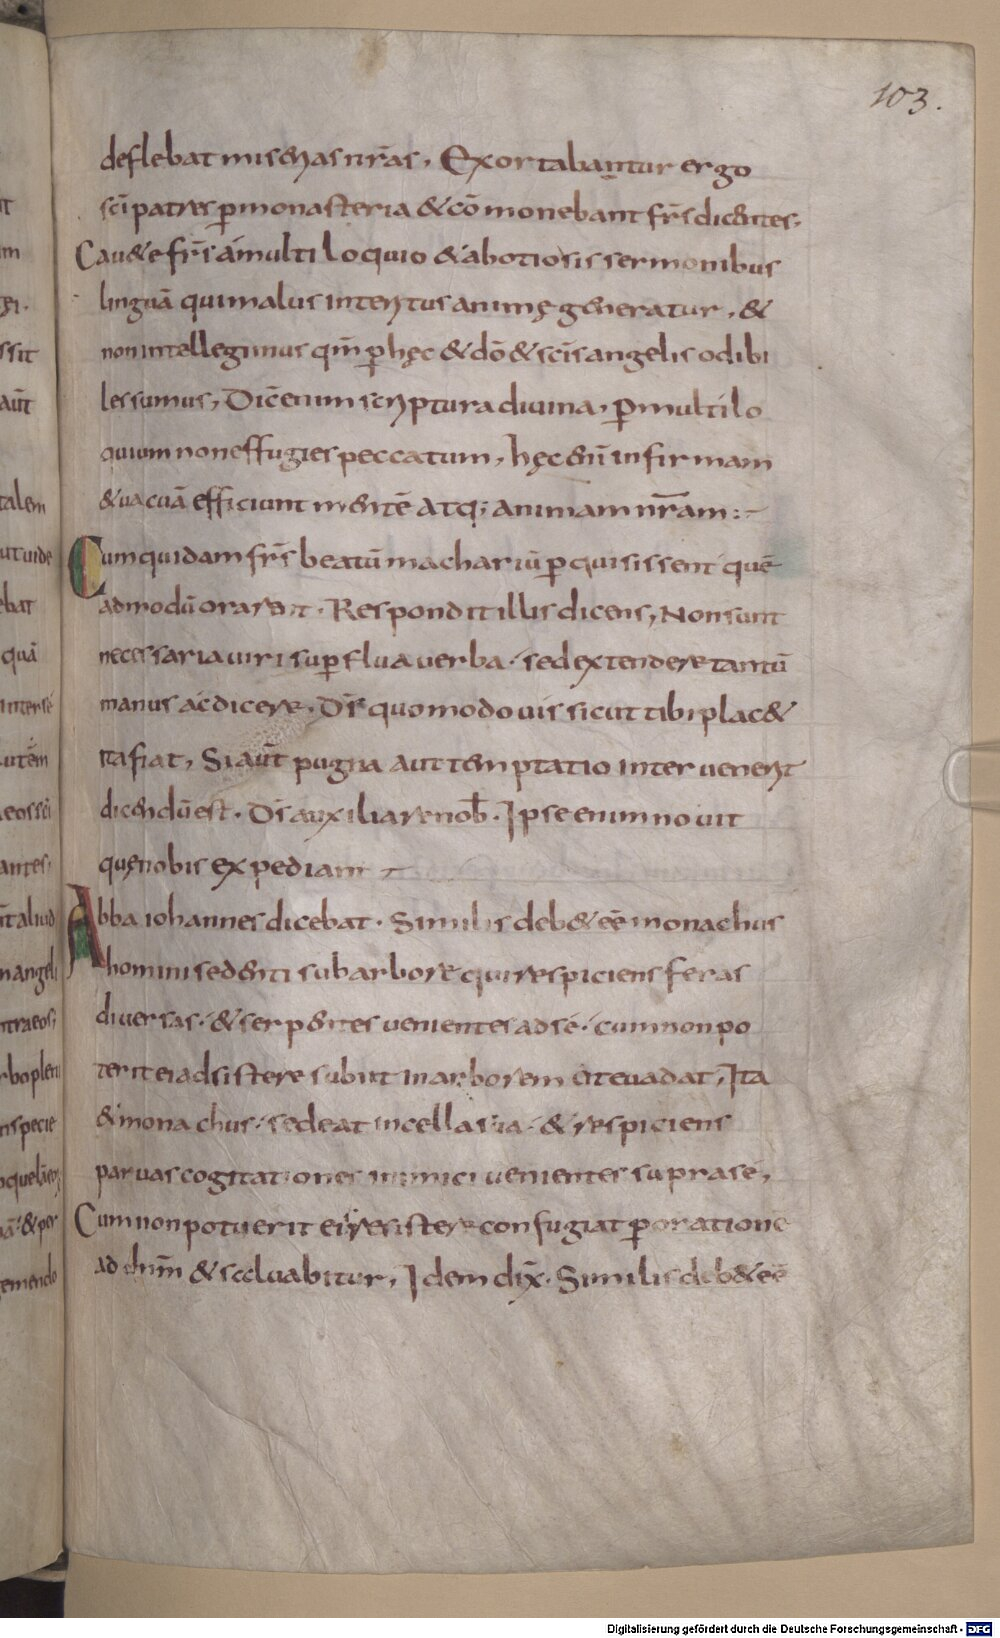 103.
deflebat miserias nr̄as, Exortabantur ergo
sc̄i patres ꝑmonasteria & cōmonebant fr̄s dicentes.
Cau&e fr̄s a multiloquio & ab otiosis sermonibus
linguā qui malus interitus animę generatur, &
non intellegimus qm̄ ꝑ hęc & dō & sc̄is angelis odibi
les sumus, Dicit enim scriptura diuina, Ꝑ multilo
quium non effugies peccatum, hęc enī infirmam
& uacuā efficiunt mentē atq; animam nr̄am:~
Cum quidam fr̄s beatū machariū ꝑquisissent quē
admodū orarent. Respondit illis dicens, Non sunt
necessaria uiri suꝑflua uerba. sed extendere tantū
manus ac dicere. Dn̄s quomodo uis sicut tibi plac&
ita fiat, Si aut̄ pugna aut temptatio interuenerit
dicendū est. Dn̄s auxiliare nob̄. Ipse enim nouit
quę nobis expediant ~
Abba iohannes dicebat. Similis deb& eē monachus
homini sedenti sub arbore qui respiciens feras
diuersas. & serpentes uenientes ad se. cum non po
terit ei adsistere subiit in arborem ut euadat, Ita
& monachus. sedeat in cella sua. & respiciens
paruas cogitationes inimici uenientes supra se,
Cum non potuerit ei resistere confugiat ꝑ oratione
ad dn̄m & saluabitur, Idem dix̄. Similis deb& eē
Digitalisierung gefördert durch die Deutsche Forschungsgemeinschaft - DFG